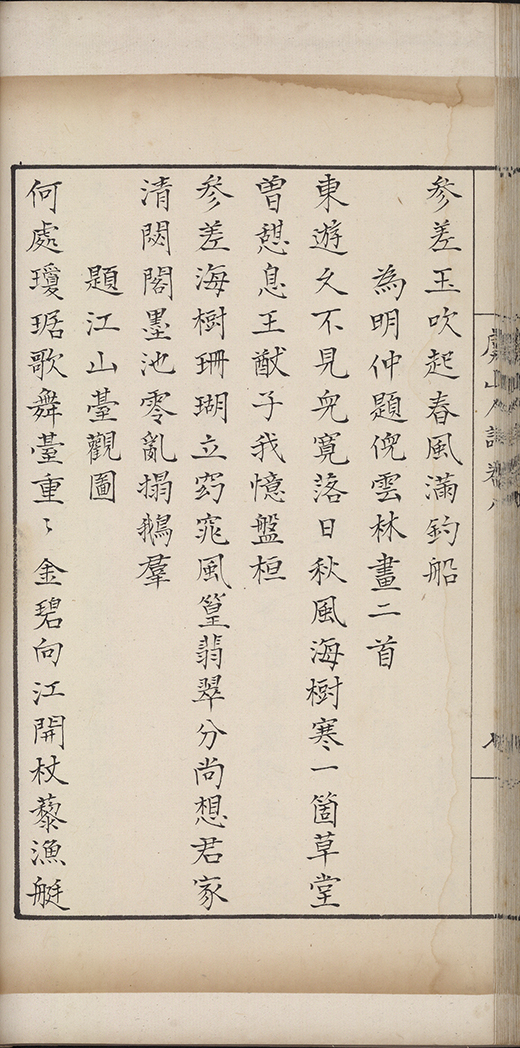 參差玉吹起春風滿釣船
為明仲題倪雲林畫二首
東遊久不見兒寬落日秋風海樹寒一箇草堂
曾憩息王猷子我憶盤桓
參差海樹珊瑚立窈窕風篁翡翠分尚想君家
清閟閣墨池零亂搨鵝羣
題江山臺觀圖
何處瓊琚歌舞臺重〻金碧向江開杖藜漁艇